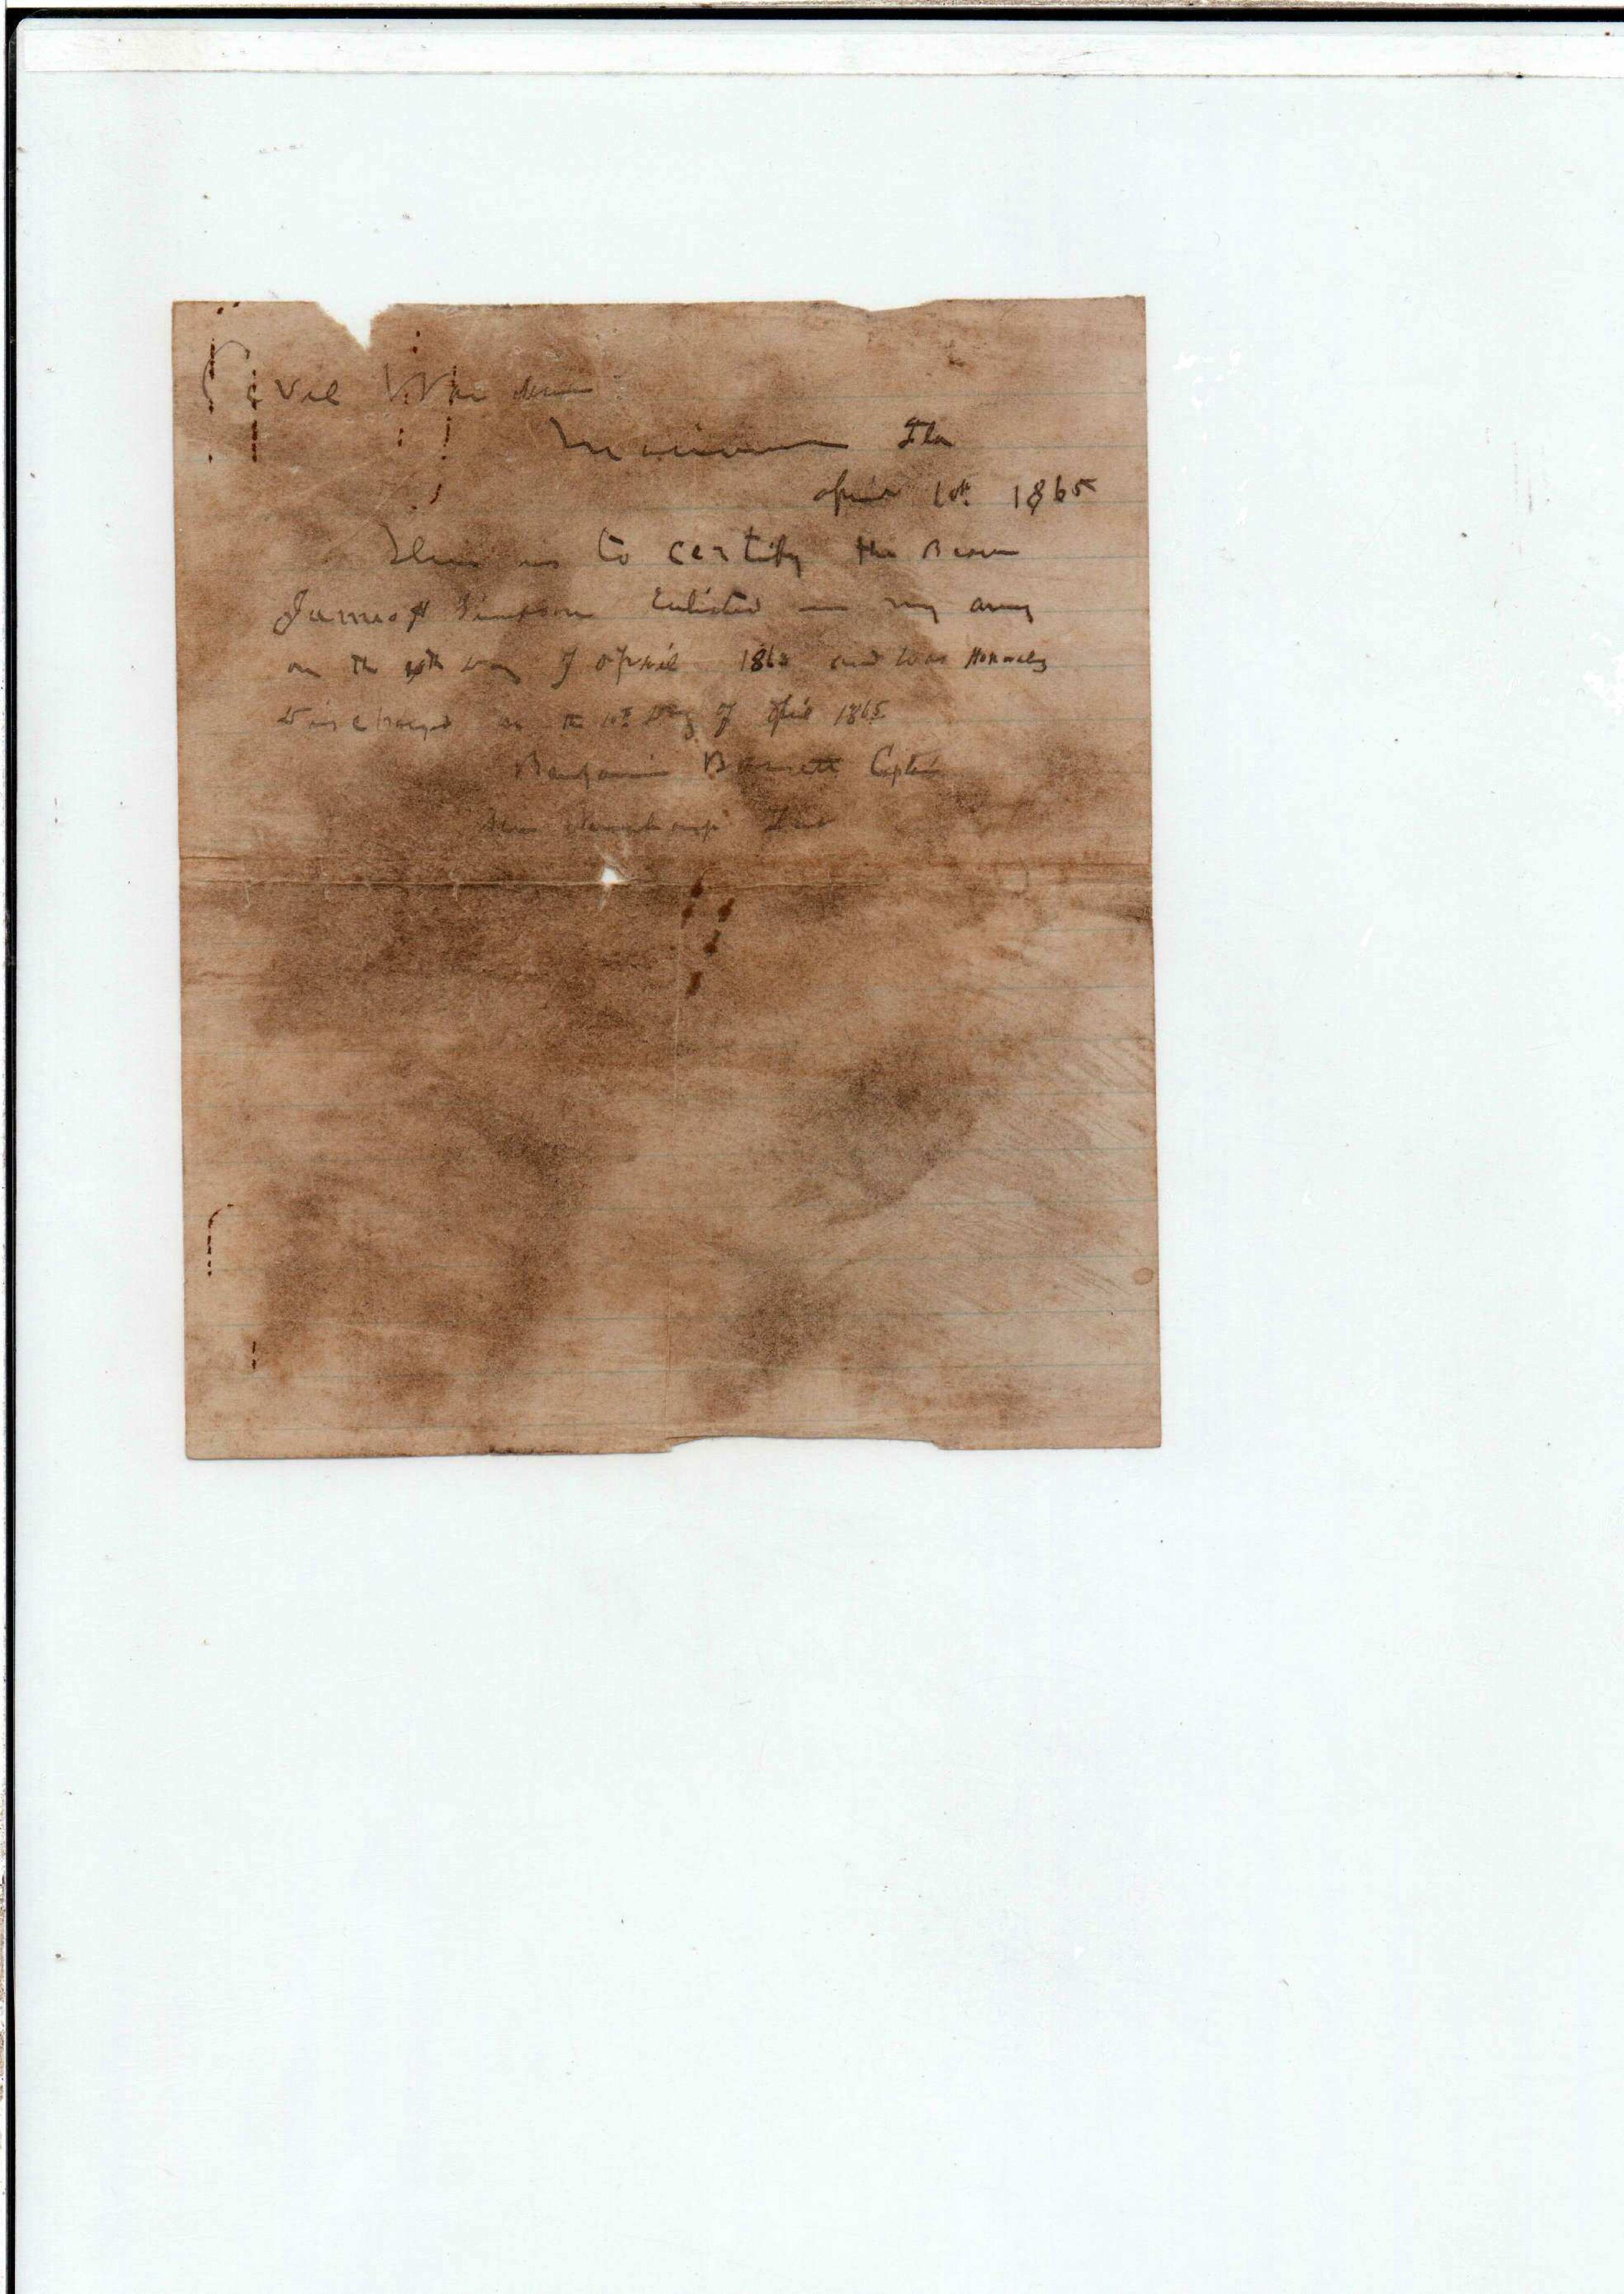 Civil War
Fla
April 10th 1865
This is to certify the Bearer
James H Simpson Enlisted in my army
on the day of April and was Honorably
Discharged on the 10th Day of April 1865
Benjamin Barnett Captain